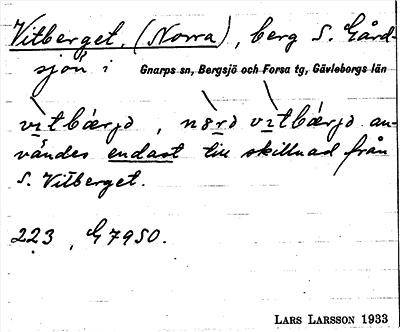 Vitberget, (Norra), berg S. Gård-
sjön i Gnarps sn, Bergsjö och Forsa tg, Gävleborgs län
vìtbǽrjə, nə̀rə vìtbǽrjə an-
vändes endast till skillnad från
S. Vitberget.
223, G7950.
LARS LARSSON 1933